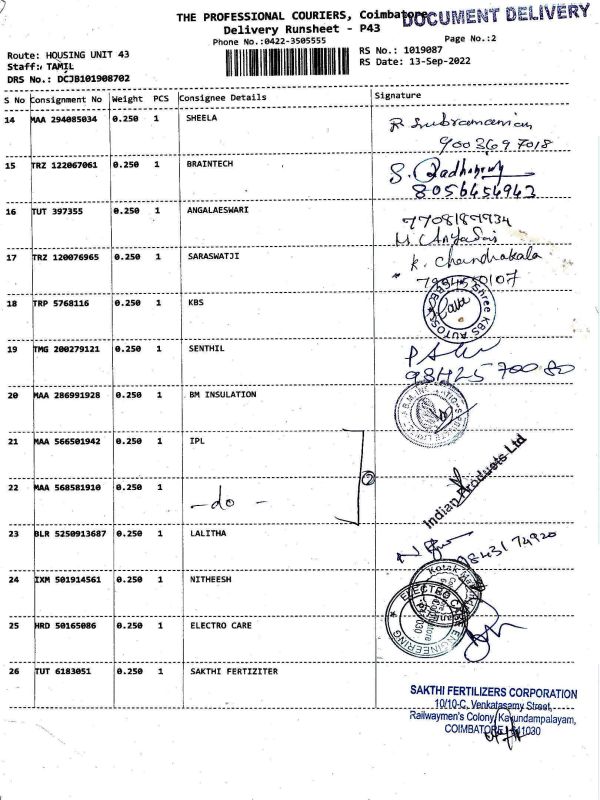 THE PROFESSIONAL COURIERS, Coimbatore
DOCUMENT DELIVERY
Delivery Runsheet - P43
Phone No.:0422-3505555
Page No.:2
Route: HOUSING UNIT 43
RS No.: 1019087
Staff: TAMIL
RS Date: 13-Sep-2022
DRS No.: DCJB101908702
S No Consignment No Weight PCS Consignee Details Signature
14 MAA 294085034 0.250 1 SHEELA
R Subramanian
9003697018
15 TRZ 122067061 0.250 1 BRAINTECH
8056454943
16 TUT 397355 0.250 1 ANGALAESWARI
7708187934
17 TRZ 120076965 0.250 1 SARASWATJI
K. Chandrakala
18 TRP 5768116 0.250 1 KBS
Shree KBS AUTOS
19 TMG 200279121 0.250 1 SENTHIL
9842570080
20 MAA 286991928 0.250 1 BM INSULATION
21 MAA 566501942 0.250 1 IPL
2
22 MAA 568581910 0.250 1 -do-
Indian Products Ltd
23 BLR 5250913687 0.250 1 LALITHA
9843174920
24 IXM 501914561 0.250 1 NITHEESH
Kotak
25 HRD 50165086 0.250 1 ELECTRO CARE
ELECTRO CARE ENGINEERING
26 TUT 6183051 0.250 1 SAKTHI FERTIZITER
SAKTHI FERTILIZERS CORPORATION
10/10-C, Venkatasamy Street,
Railwaymen's Colony, Kavundampalayam,
COIMBATORE 641030